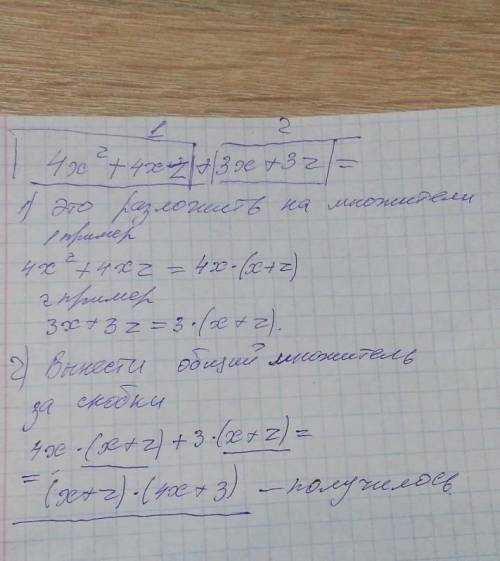 1 2
4x² + 4xz + 3x + 3z =
1) Это разложить на множители
1 пример
4x² + 4xz = 4x·(x+z)
2 пример
3x + 3z = 3·(x+z).
2) Вынести общий множитель
за скобки
4x·(x+z) + 3·(x+z) =
= (x+z)·(4x+3) – получилось